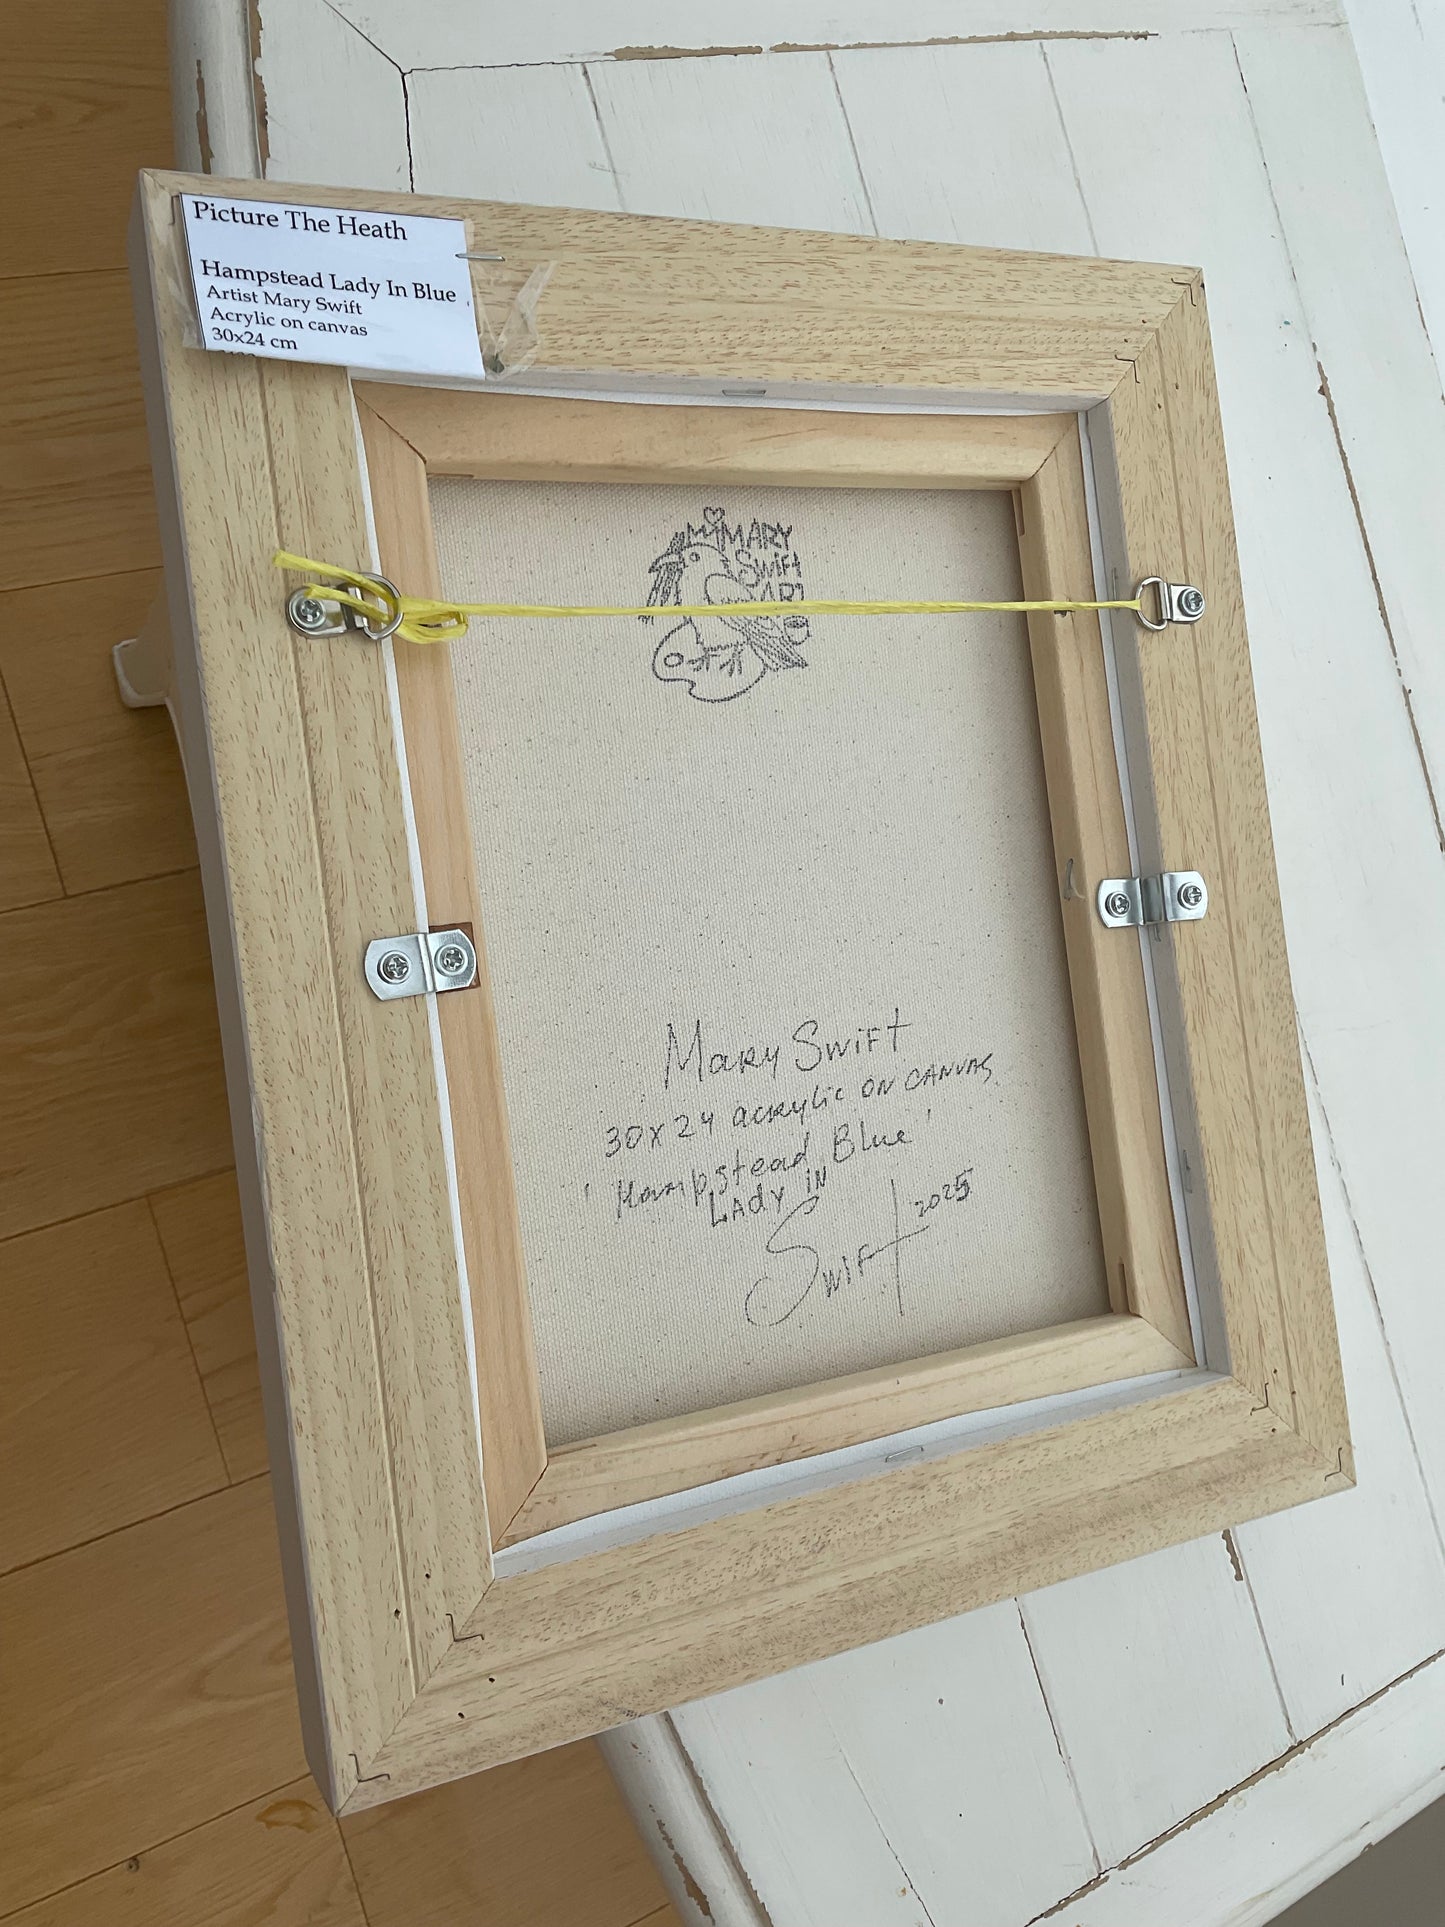 Picture The Heath
Hampstead Lady In Blue
Artist Mary Swift
Acrylic on canvas
30x24 cm
MARY
SWIFT
ART
Mary Swift
30x24 acrylic ON CANVAS
'Hampstead Blue'
LAdy iN
Swift 2025